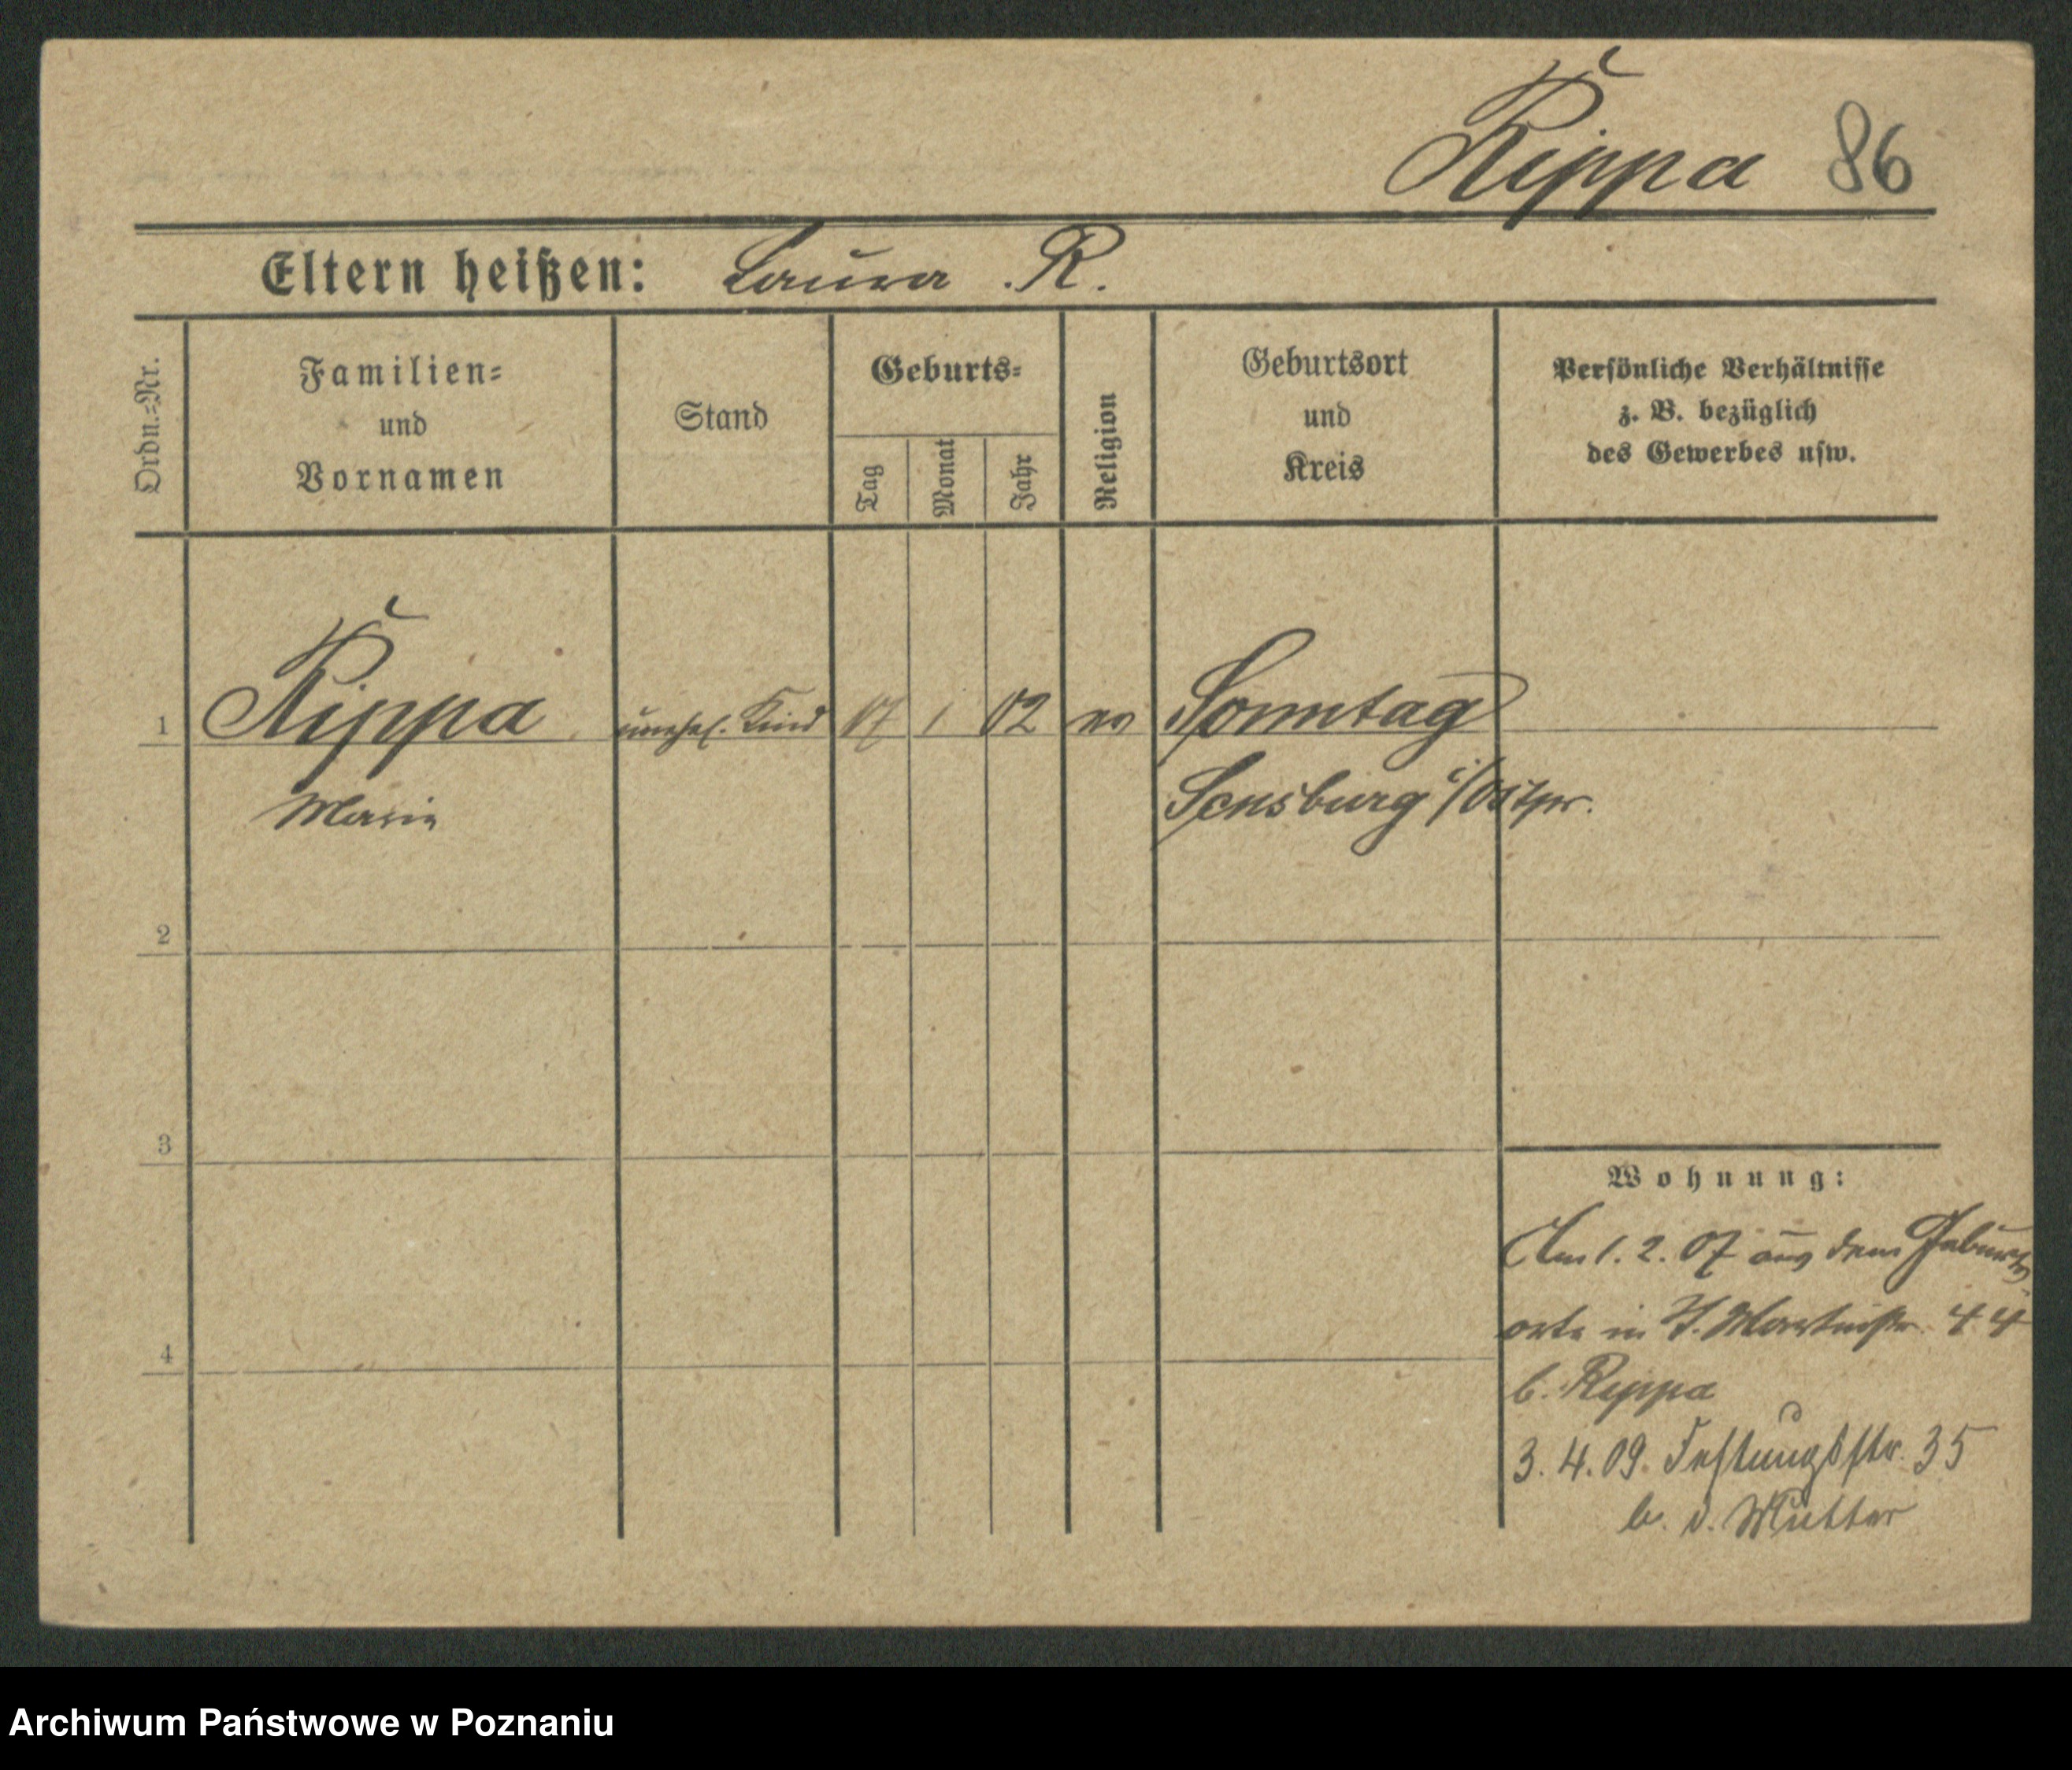 Rippa 86
Eltern heißen: Laura R.
Ordn.-Nr.
Familien-
und
Vornamen
Stand
Geburts-
Tag
Monat
Jahr
Religion
Geburtsort
und
Kreis
Persönliche Verhältnisse
z. B. bezüglich
des Gewerbes usw.
1 Rippa unehel. Kind 17 1 02 ev Sonntag
Maria Sensburg i/Ostpr.
2
3
4
Wohnung:
Am 1. 2. 07 aus dem Geburts
orte in 44
b. Rippa
3. 4. 09. Festungsstr. 35
b. d. Mutter
Archiwum Państwowe w Poznaniu